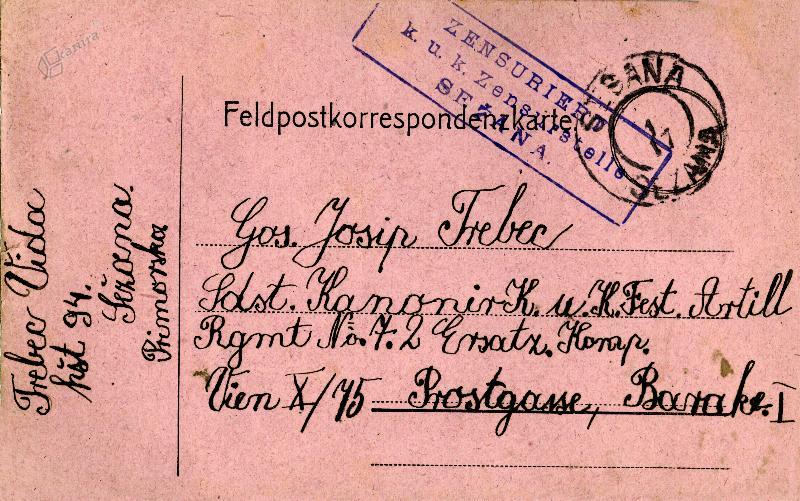 kamra
ZENSURIERT
k. u. k. Zensurstelle
SEŽANA.
SESANA
SEŽANA
Feldpostkorrespondenzkarte
Gos. Josip Trebec
Ldst. Kanonir K. u. K. Fest. Artill
Rgmt No. 7. 2 Ersatz. Komp.
Vien X/75 Prostgasse, Barake. I
Trebec Vida
hšt 94.
Sežana.
Primorska